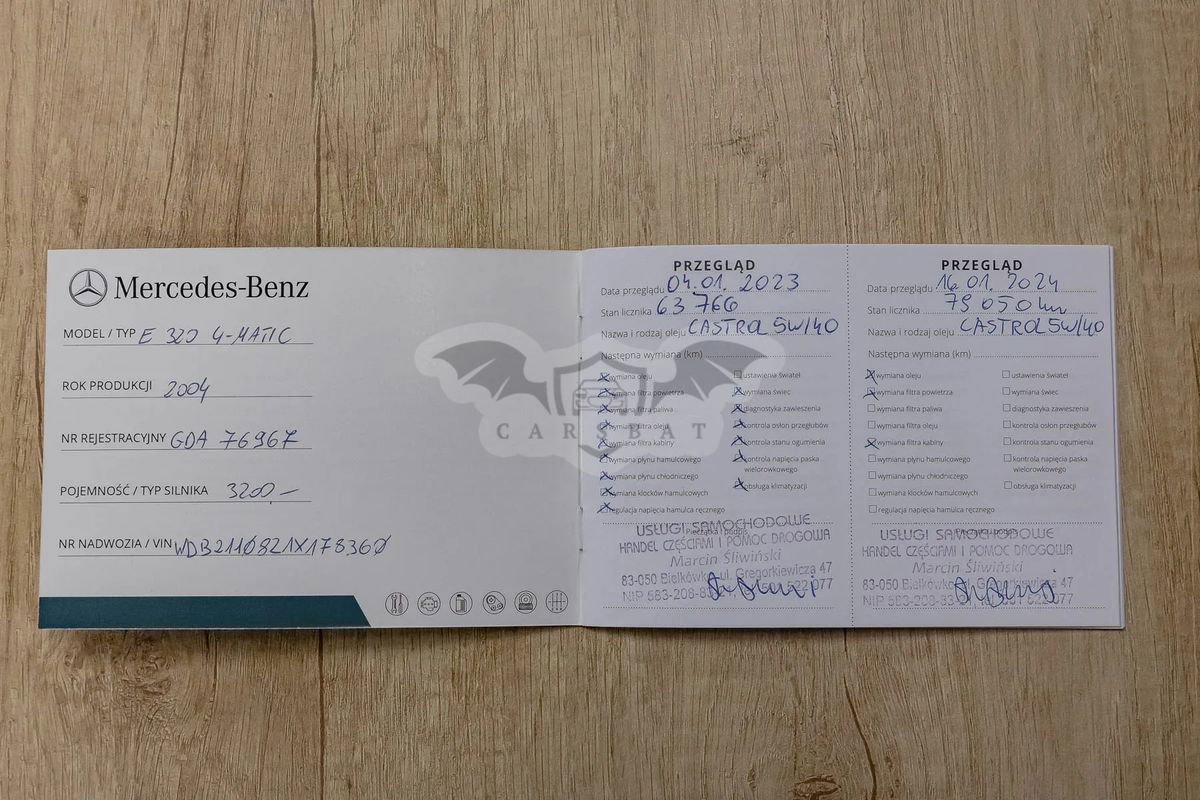 Mercedes-Benz
MODEL / TYP E 320 4-MATIC
ROK PRODUKCJI 2004
NR REJESTRACYJNY GDA 76967
POJEMNOŚĆ / TYP SILNIKA 3200,-
NR NADWOZIA / VIN WDB2110821X178360
CARSBAT
PRZEGLĄD
Data przeglądu 04.01.2023
Stan licznika 63 766
Nazwa i rodzaj oleju CASTROL 5W/40
Następna wymiana (km)
wymiana oleju
wymiana filtra powietrza
wymiana filtra paliwa
wymiana filtra oleju
wymiana filtra kabiny
wymiana płynu hamulcowego
wymiana płynu chłodniczego
wymiana klocków hamulcowych
regulacja napięcia hamulca ręcznego
ustawienia świateł
wymiana świec
diagnostyka zawieszenia
kontrola osłon przegubów
kontrola stanu ogumienia
kontrola napięcia paska
wielorowkowego
obsługa klimatyzacji
Pieczątka i podpis
USŁUGI SAMOCHODOWE
HANDEL CZĘŚCIAMI I POMOC DROGOWA
Marcin Śliwiński
83-050 Bielkówko, ul. Gregorkiewicza 47
NIP 583-208-83
PRZEGLĄD
Data przeglądu 16.01.2024
Stan licznika 79 050 km
Nazwa i rodzaj oleju CASTROL 5W/40
Następna wymiana (km)
wymiana oleju
wymiana filtra powietrza
wymiana filtra paliwa
wymiana filtra oleju
wymiana filtra kabiny
wymiana płynu hamulcowego
wymiana płynu chłodniczego
wymiana klocków hamulcowych
regulacja napięcia hamulca ręcznego
ustawienia świateł
wymiana świec
diagnostyka zawieszenia
kontrola osłon przegubów
kontrola stanu ogumienia
kontrola napięcia paska
wielorowkowego
obsługa klimatyzacji
Pieczątka i podpis
USŁUGI SAMOCHODOWE
HANDEL CZĘŚCIAMI I POMOC DROGOWA
Marcin Śliwiński
83-050 Bielkówko, ul. Gregorkiewicza 47
NIP 583-208-83